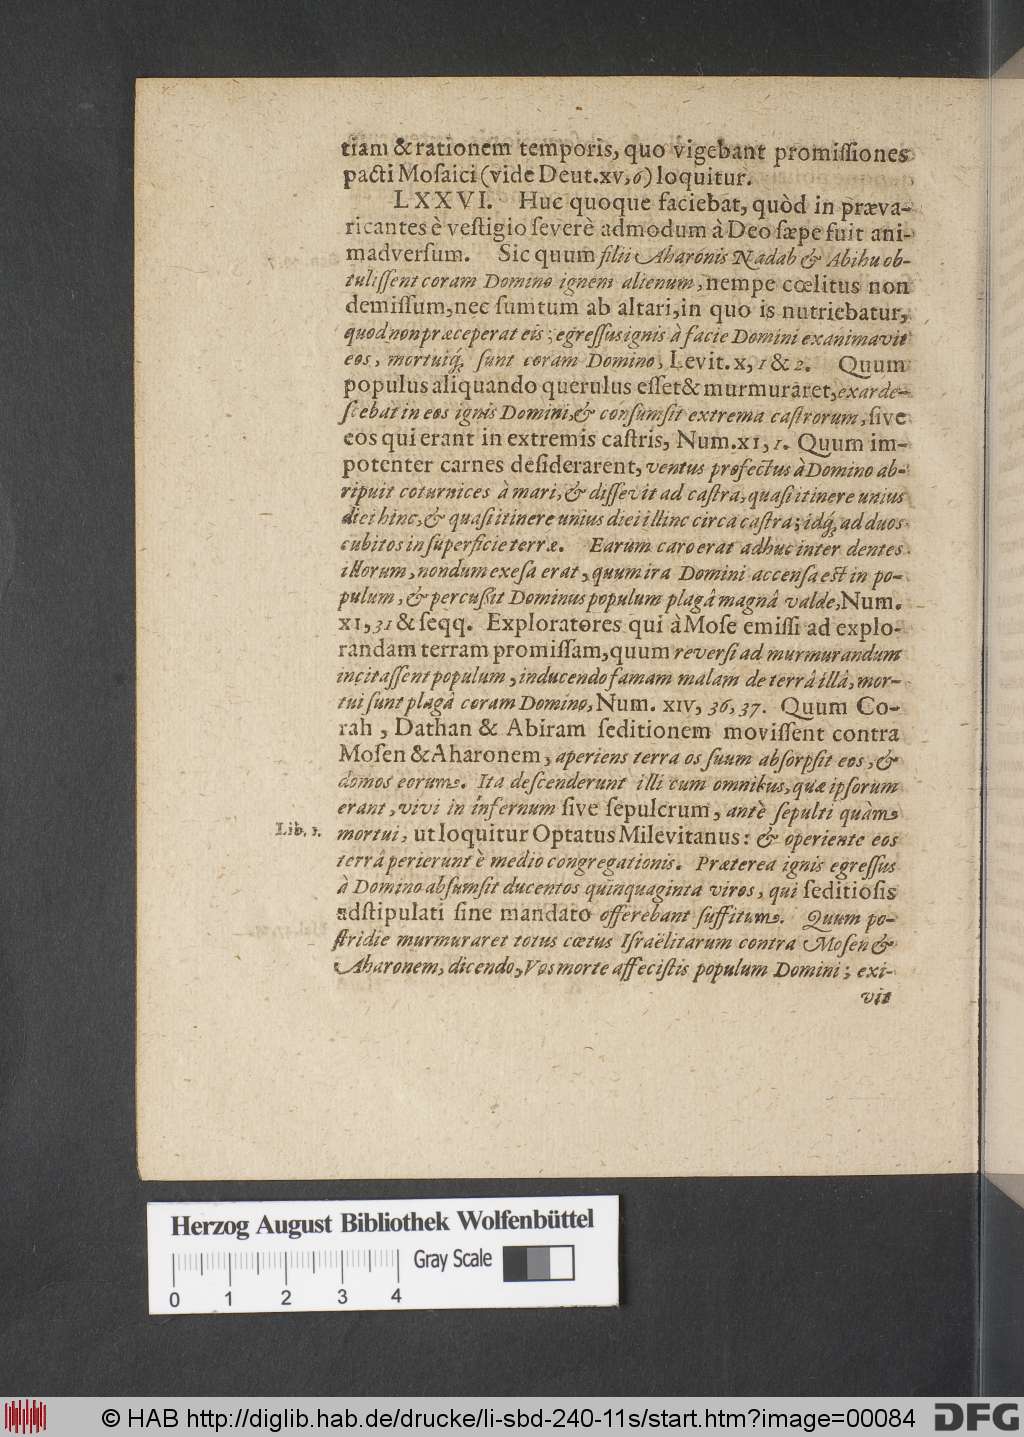 tiam & rationem temporis, quo vigebant promiſſiones
pacti Moſaici (vide Deut. xv, 6) loquitur.
LXXVI. Huc quoque faciebat, quòd in præva-
ricantes è veſtigio ſeverè admodum à Deo ſæpe fuit ani-
madverſum. Sic quum filii Aharonis Nadab & Abihu ob-
tuliſſent coram Domino ignem alienum, nempe cœlitus non
demiſſum, nec ſumtum ab altari, in quo is nutriebatur,
quod non præceperat eis; egreſſus ignis à facie Domini exanimavit
eos, mortuiq́; ſunt coram Domino, Levit. x, 1 & 2. Quum
populus aliquando querulus eſſet & murmuraret, exarde-
ſcebat in eos ignis Domini, & conſumſit extrema caſtrorum, ſive
eos qui erant in extremis caſtris, Num. xi, 1. Quum im-
potenter carnes deſiderarent, ventus profectus à Domino ab-
ripuit coturnices à mari, & diſſevit ad caſtra, quaſi itinere unius
diei hinc, & quaſi itinere unius diei illinc circa caſtra; idq́; ad duos
cubitos in ſuperficie terræ. Earum caro erat adhuc inter dentes
illorum, nondum exeſa erat, quum ira Domini accenſa eſt in po-
pulum, & percußit Dominus populum plagâ magnâ valde, Num.
xi, 31 & ſeqq. Exploratores qui à Moſe emiſſi ad explo-
randam terram promiſſam, quum reverſi ad murmurandum
incitaſſent populum, inducendo famam malam de terrâ illâ, mor-
tui ſunt plagâ coram Domino, Num. xiv, 36, 37. Quum Co-
rah, Dathan & Abiram ſeditionem moviſſent contra
Moſen & Aharonem, aperiens terra os ſuum abſorpſit eos, &
domos eorum. Ita deſcenderunt illi cum omnibus, quæ ipſorum
erant, vivi in infernum ſive ſepulcrum, antè ſepulti quàm
Lib. 1. mortui, ut loquitur Optatus Milevitanus: & operiente eos
terrâ perierunt è medio congregationis. Præterea ignis egreſſus
à Domino abſumſit ducentos quinquaginta viros, qui ſeditioſis
adſtipulati ſine mandato offerebant ſuffitum. Quum po-
ſtridie murmuraret totus cœtus Iſraëlitarum contra Moſen &
Aharonem, dicendo, Vos morte affeciſtis populum Domini; exi-
vit
Herzog August Bibliothek Wolfenbüttel
Gray Scale
0 1 2 3 4
© HAB http://diglib.hab.de/drucke/li-sbd-240-11s/start.htm?image=00084 DFG